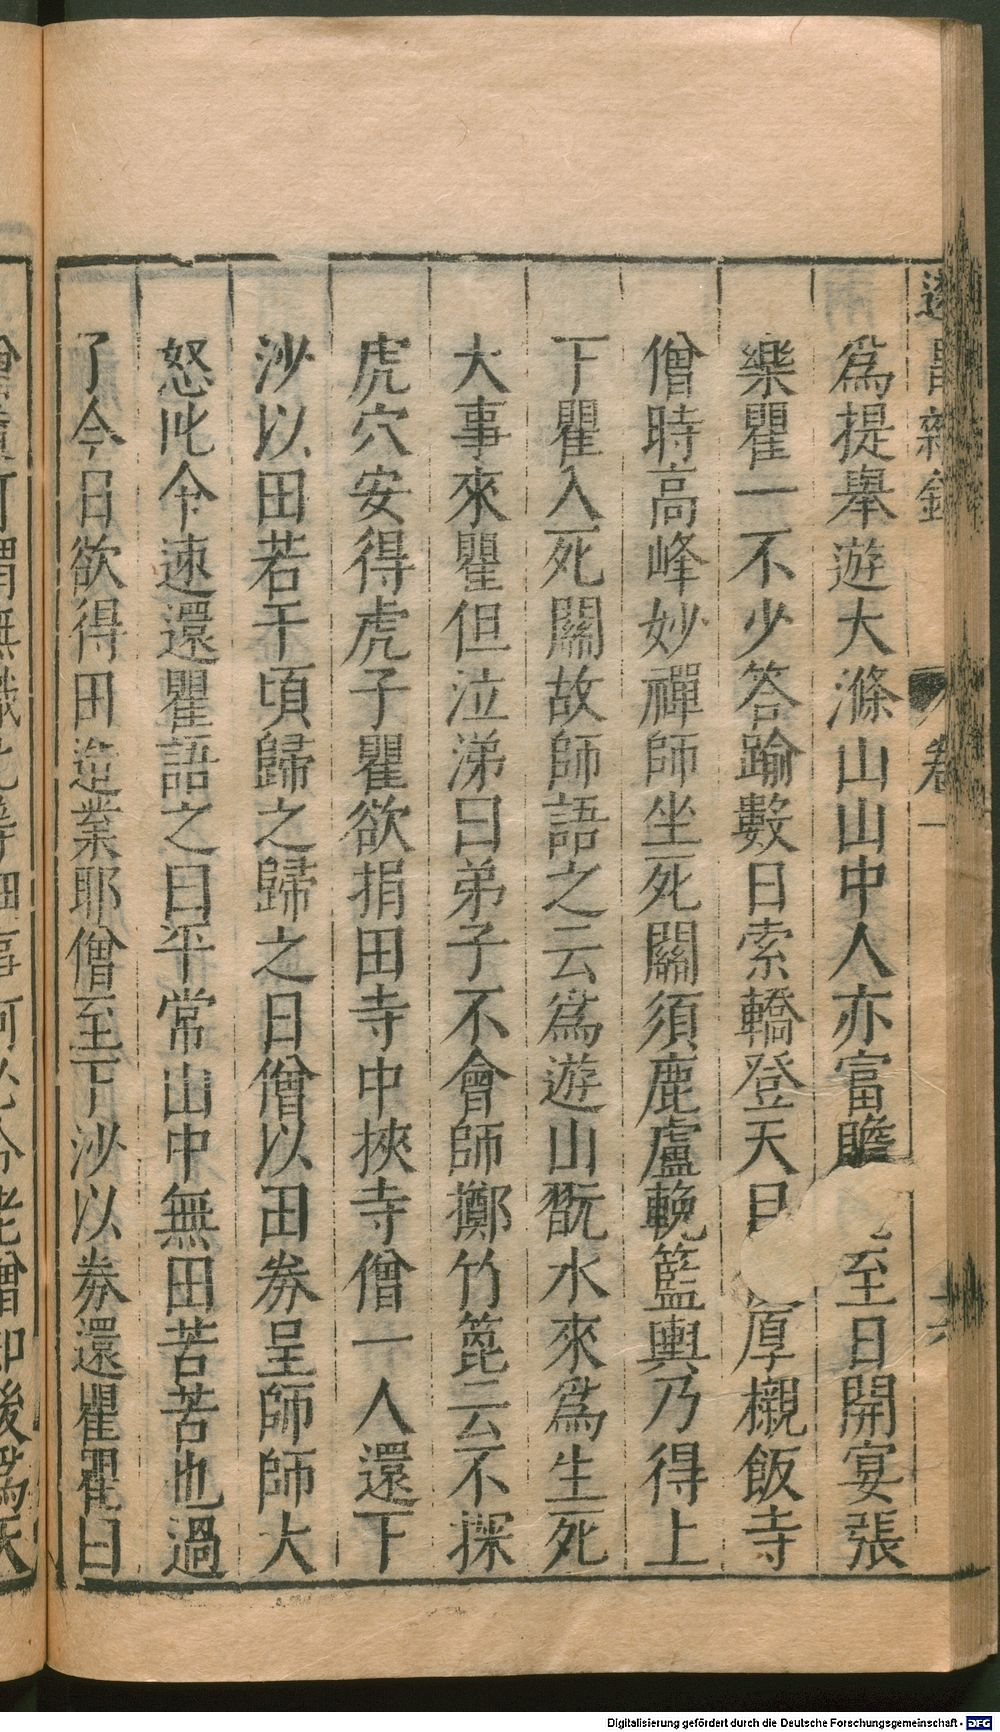 遂昌雜錄 卷一 六
爲提舉遊大滌山山中人亦富贍 至日開宴張
樂瞿一不少答踰數日索轎登天目 厚櫬飯寺
僧時高峰妙禪師坐死關須鹿盧輓籃輿乃得上
下瞿入死關故師語之云爲遊山翫水來爲生死
大事來瞿但泣涕曰弟子不會師擲竹篦云不探
虎穴安得虎子瞿欲捐田寺中挾寺僧一人還下
沙以田若干頃歸之歸之日僧以田券呈師師大
怒叱令速還瞿語之曰平常山中無田苦苦也過
了今日欲得田造業耶僧至下沙以券還瞿瞿曰
Digitalisierung gefördert durch die Deutsche Forschungsgemeinschaft - DFG